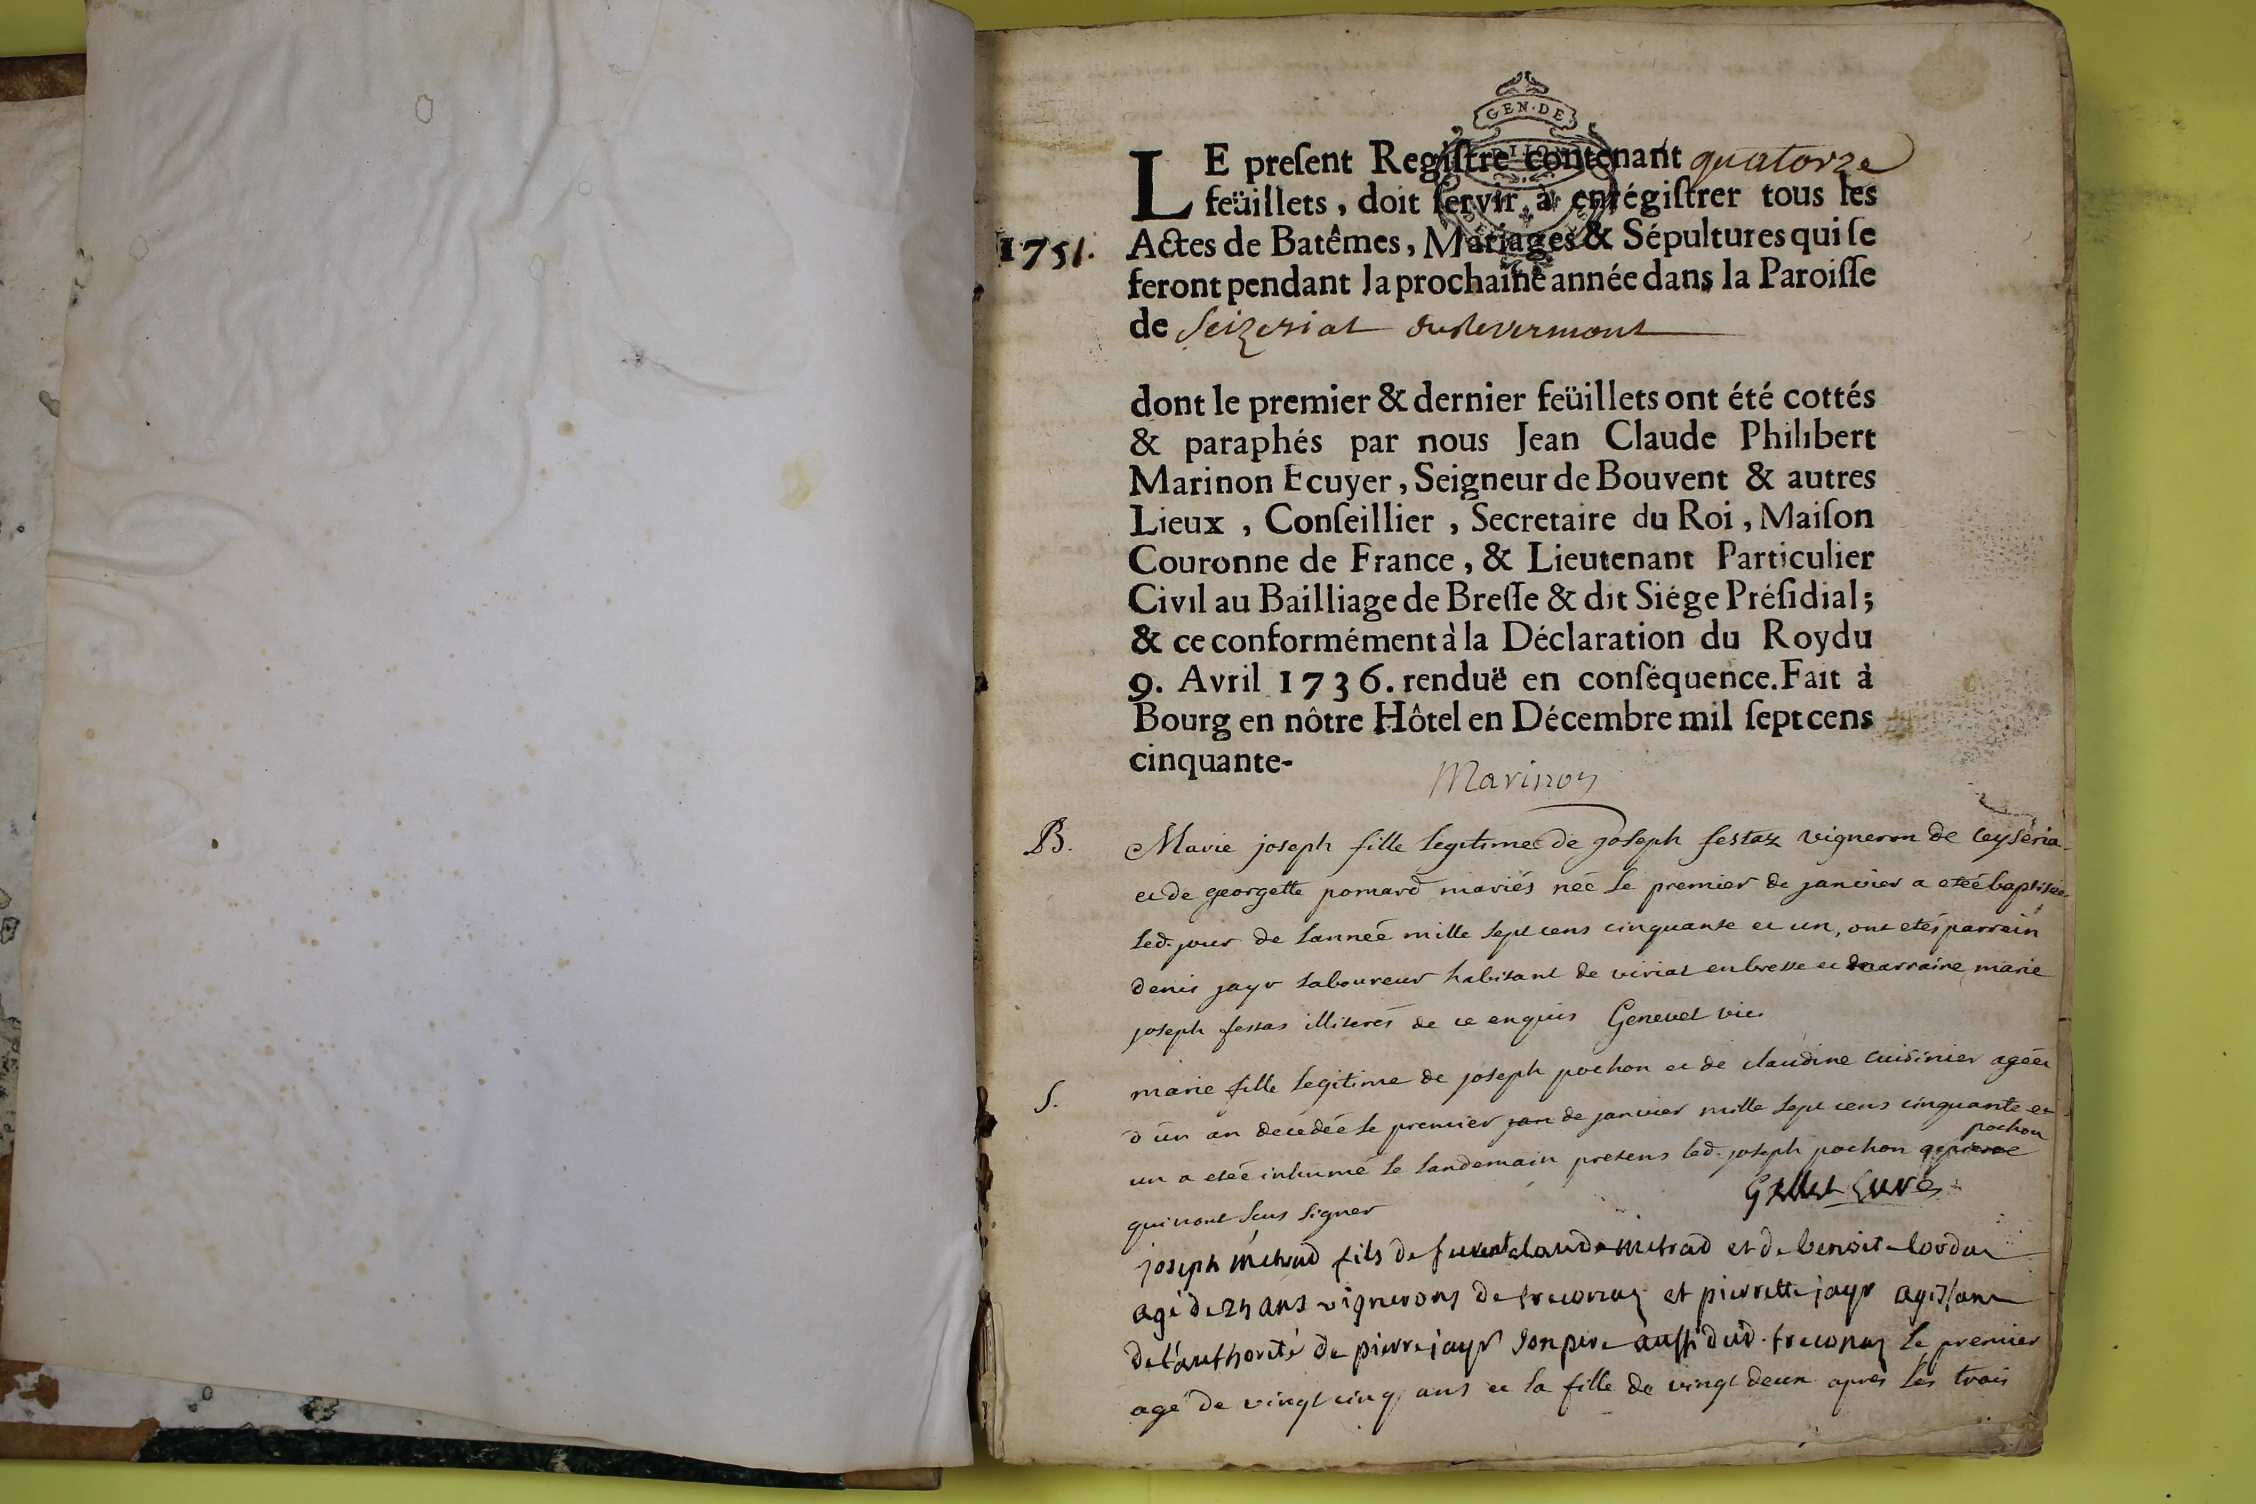 GEN. DE
DIJON
LE preſent Regiſtre contenant quatorze
feüillets, doit ſervir à enrégiſtrer tous les
1751. Actes de Batêmes, Mariages & Sépultures qui ſe
feront pendant la prochaine année dans la Paroiſſe
de Seizeriat en Revermont
dont le premier & dernier feüillets ont été cottés
& paraphés par nous Jean Claude Philibert
Marinon Ecuyer, Seigneur de Bouvent & autres
Lieux, Conſeillier, Secretaire du Roi, Maiſon
Couronne de France, & Lieutenant Particulier
Civil au Bailliage de Breſſe & dit Siége Préſidial;
& ce conformément à la Déclaration du Roy du
9. Avril 1736. renduë en conſéquence. Fait à
Bourg en nôtre Hôtel en Décembre mil ſept cens
cinquante-
Marinon
B. Marie joseph fille legitime de joseph festaz vigneron de ceyseria
et de georgette pomard mariés née le premier de janvier a eteé baptisée
led. jour de lanneé mille sept cens cinquante et un, ont etés parrein
denis jayr laboureur habitant de viriat en bresse et marraine marie
joseph festas illiterés de ce enquis Genevet vic.
S. marie fille legitime de joseph pochon et de claudine cuisinier ageé
d'un an decedeé le premier de janvier mille sept cens cinquante et
un a eteé inhumé le landemain presens led. joseph pochon pochon
qui n'ont seus signer Gallet Curé
joseph metrad fils de claude metrad et de benoite
agé de 25 ans vignerons de treconnaz et pierrette jayr agissant
de l'authorité de pierre jayr son pere aussi dud. treconnaz le premier
agé de vingt cinq ans et la fille de vingt deux apres les trois